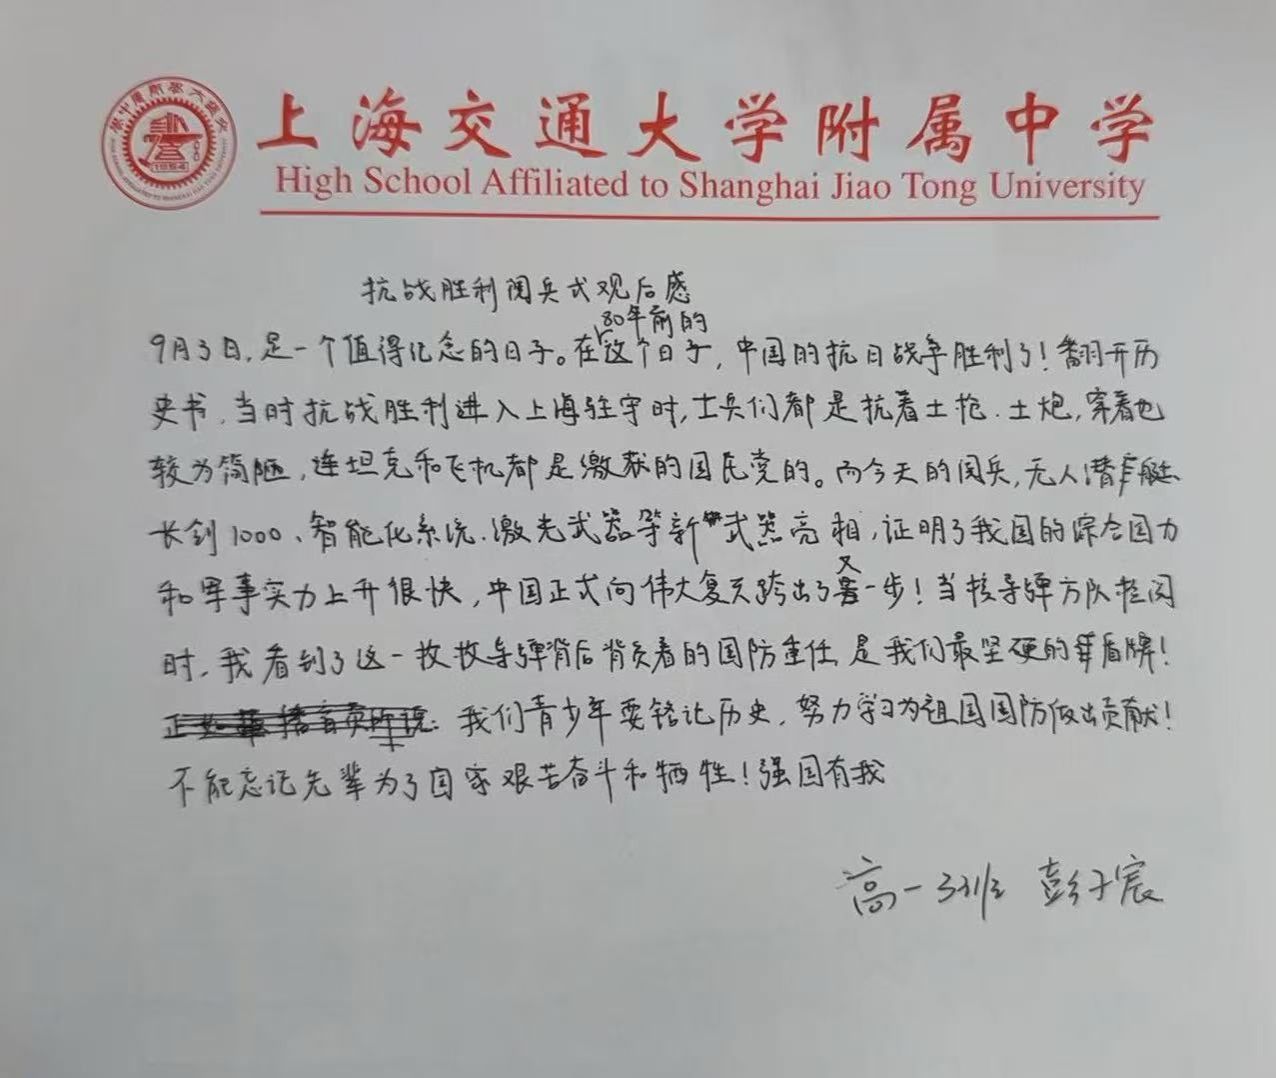 上海交通大学附属中学
High School Affiliated to Shanghai Jiao Tong University
抗战胜利阅兵式观后感
80年前的
9月3日,是一个值得纪念的日子。在这个日子,中国的抗日战争胜利了!翻开历
史书,当时抗战胜利进入上海驻守时,士兵们都是抗着土枪、土炮,穿着也
较为简陋,连坦克和飞机都是缴获的国民党的。而今天的阅兵,无人潜艇
长剑1000、智能化系统、激光武器等新武器亮相,证明了我国的综合国力
和军事实力上升很快,中国正式向伟大复兴跨出了又一步!当核导弹方队检阅
时,我看到了这一枚枚导弹背后背负着的国防重任,是我们最坚硬的盾牌!
我们青少年要铭记历史,努力学习为祖国国防做出贡献!
不能忘记先辈为了国家艰苦奋斗和牺牲!强国有我
高一3班 彭子宸